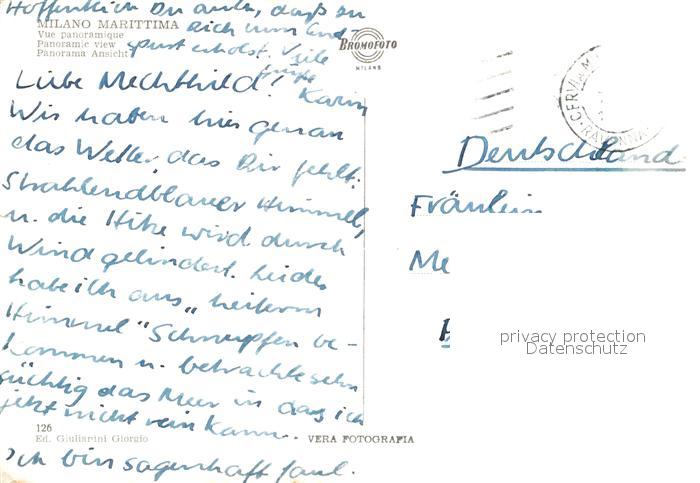 Liebe Mechthild!
Wir haben hier genau
das Wetter, das Dir fehlt:
Strahlendblauer Himmel,
u. die Hitze wird durch
Wind gelindert. Leider
habe ich aus "heiterem
Himmel" Schnupfen be-
kommen u. betrachte sehn
süchtig das Meer in das ich
jetzt nicht rein kann.
Ich bin sagenhaft faul.
Hoffentlich Du auch, daß Du
Dich zum
erholst. Viele
Grüße
Karin
MILANO MARITTIMA
Vue panoramique
Panoramic view
Panorama Ansicht
BROMOFOTO
MILANO
CERVIA M
RAVENNA
Deutschland
Fräulein
Me
privacy protection
Datenschutz
126
Ed. Giuliarini Giorgio
VERA FOTOGRAFIA